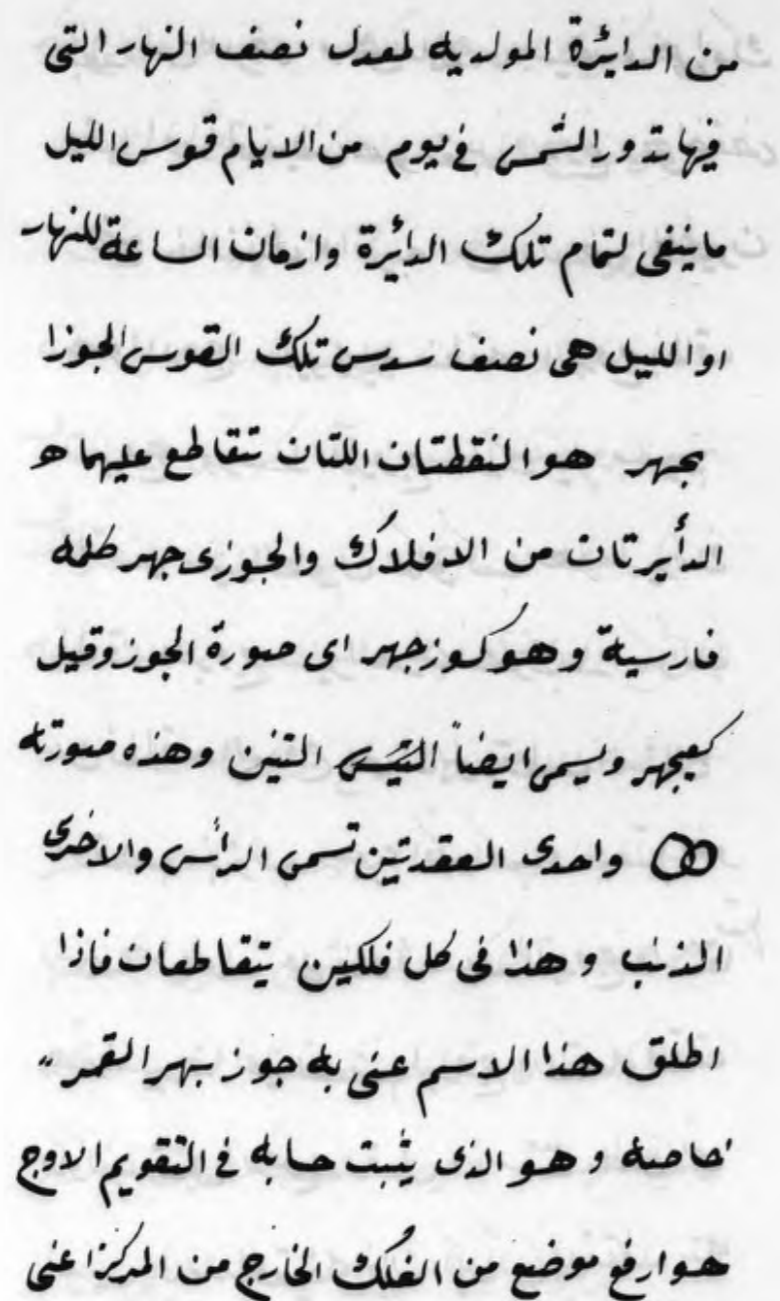 من الدائرة المولديه لمعدل نصف النهار التى
فيها تدور الشمس فى يوم من الايام قوس الليل
ما ينفى لتمام تلك الدائرة وازمان الساعة للنهار
او الليل هى نصف سدس تلك القوس الجوزا
بجهر هو النقطتان اللتان تتقاطع عليهما
الدأيرتان من الافلاك والجوزى جهر كلمه
فارسية وهو كوزجهر اى صورة الجوز وقيل
ويسمى ايضاً التنين وهذه صورته
واحدى العقدتين تسمى الرأس والاخرى
الذنب وهذا فى كل فلكين يتقاطعان فاذا
اطلق هذا الاسم عنى به جوز بهر القمر
خاصة وهو الذى يثبت حسابه فى التقويم الاوج
هو ارفع موضع من الفلك الخارج من المركز اعنى